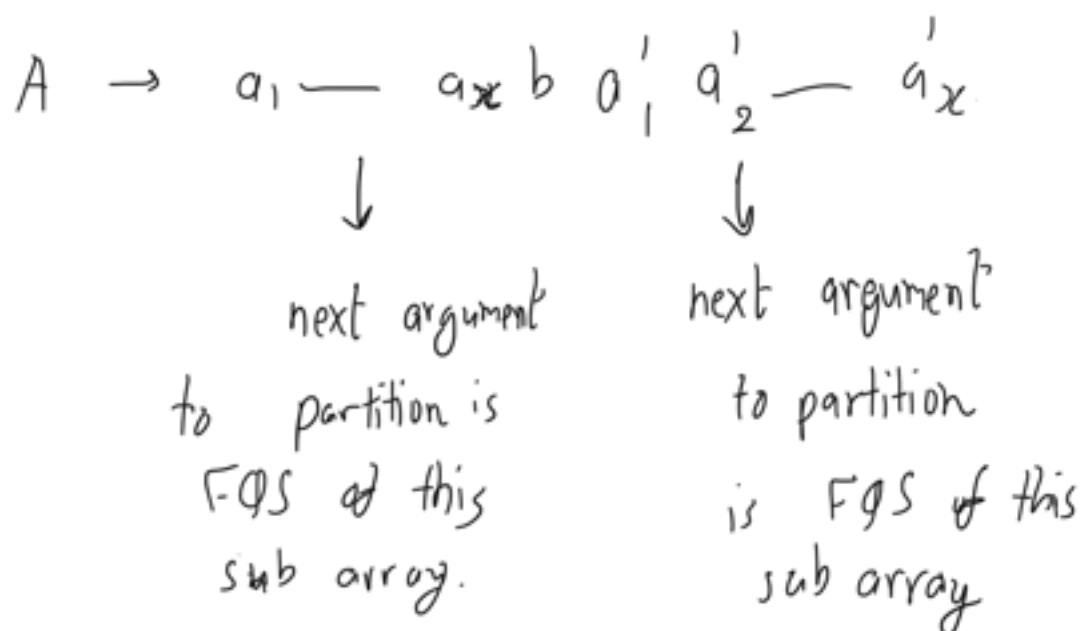 A → a₁ — aₓ b a'₁ a'₂ — a'ₓ
↓ ↓
next argument
to partition is
FQS of this
sub array.
next argument
to partition
is FQS of this
sub array